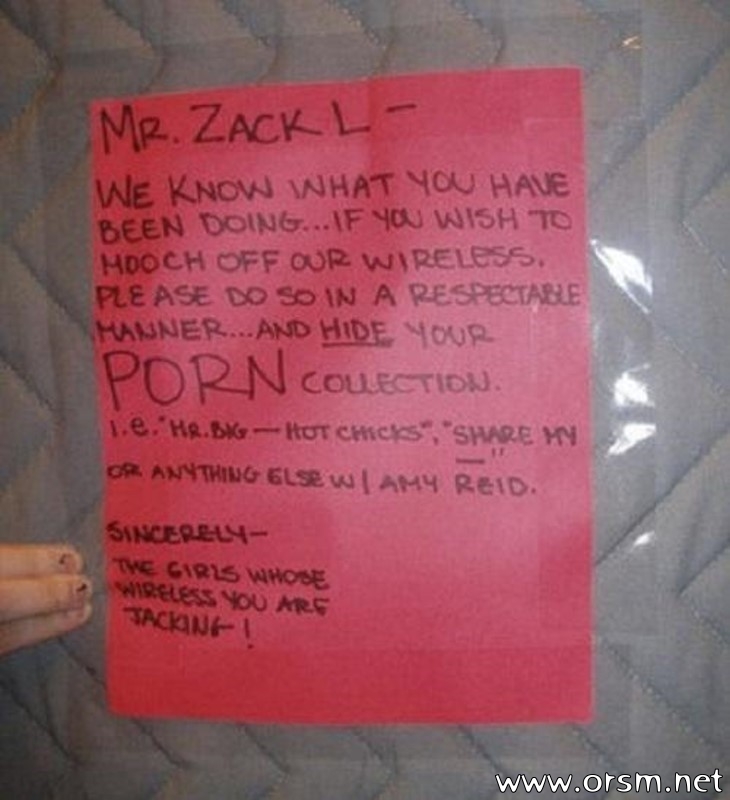 MR. ZACK L –
WE KNOW WHAT YOU HAVE
BEEN DOING...IF YOU WISH TO
MOOCH OFF OUR WIRELESS.
PLEASE DO SO IN A RESPECTABLE
MANNER...AND HIDE YOUR
PORN COLLECTION.
i.e. "MR. BIG — HOT CHICKS", "SHARE MY
—"
OR ANYTHING ELSE W/ AMY REID.
SINCERELY—
THE GIRLS WHOSE
WIRELESS YOU ARE
JACKING!
www.orsm.net